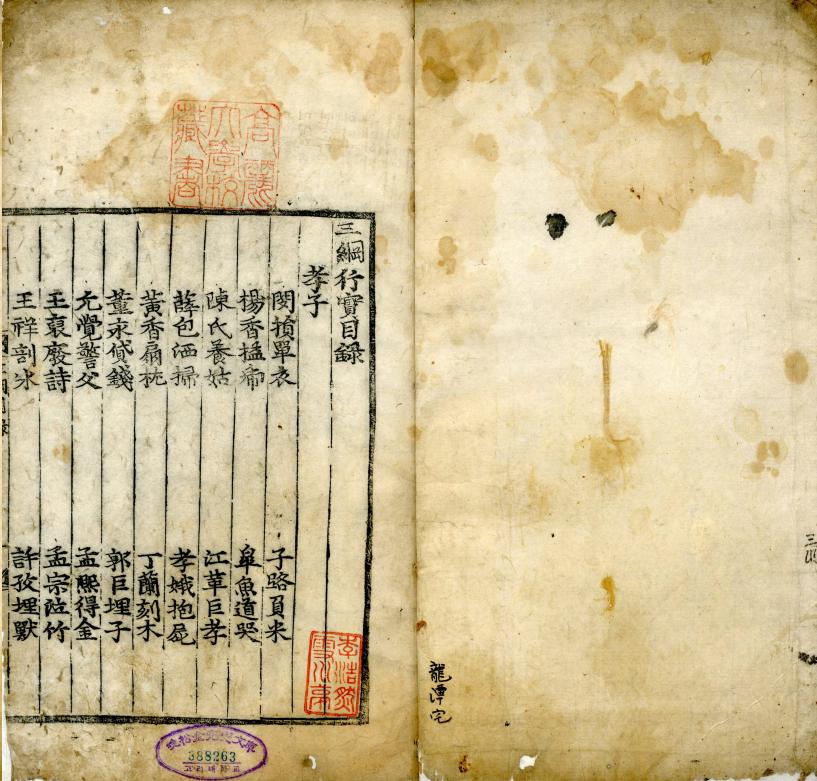 龍潭宅
高麗
大學校
藏書
三綱行實目錄
孝子
閔損單衣 子路負米
楊香搤虎 皐魚道哭
陳氏養姑 江革巨孝
薛包洒掃 孝娥抱屍
黃香扇枕 丁蘭刻木
董永貸錢 郭巨埋子
元覺警父 孟熙得金
王裒廢詩 孟宗泣竹
王祥剖氷 許孜埋獸
晩松金完燮文庫
388263
고려대학교